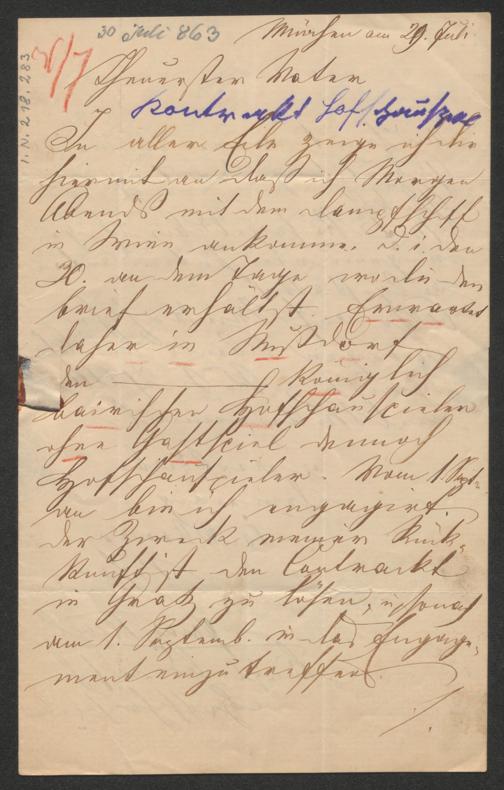 30 Juli 863
München am 29. Juli
30/7
I. N. 218.283
Theuerster Vater
Kontrakt Hofschauspiel
In aller Eile zeige ich dir
hiermit an daß ich Morgen
Abends mit dem Dampfschiff
in Wien ankomme. d. i. den
30. an dem Tage wo du den
brief erhältst. Erwartet
daher in Nußdorf
den königlich
bairischen Hofschauspieler
ohne Gastspiel dennoch
Hofschauspieler. Vom 1 Sept.
an bin ich engagirt.
der Zweck meiner Rück-
kunft ist den Contrackt
in Gratz zu lösen, u. sonach
am 1. Septemb. in das Engage-
ment einzutreffen.
./.